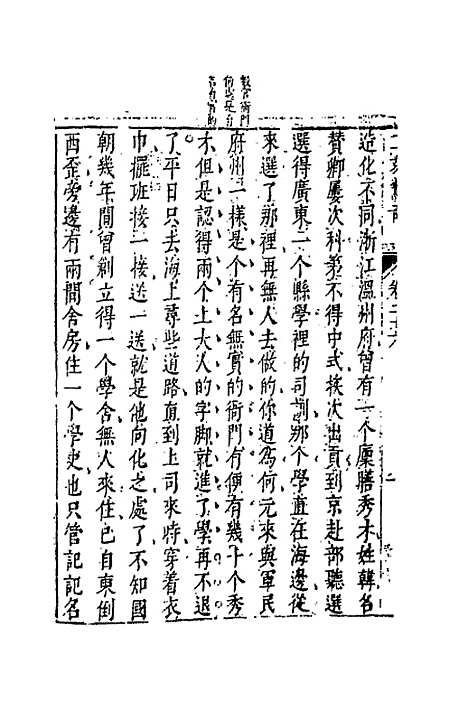 教官衙門
造化不同浙江溫州府曾有一个廩膳秀才姓韓名
贊卿屢次科第不得中式挨次出貢到京赴部聽選
選得廣東一个縣學裡的司訓那个學直在海邊從
來選了那裡再無人去做的你道為何元來與軍民
府州一樣是个有名無實的衙門有便有幾十个秀
才但是認得兩个上大人的字脚就進了學再不退
了平日只去海上尋些道路直到上司來時穿着衣
巾擺班接一接送一送就是他向化之處了不知國
朝幾年間曾創立得一个學舍無人來住已自東倒
西歪旁邊有兩間舍房住一个學吏也只管記記名
卷二十六